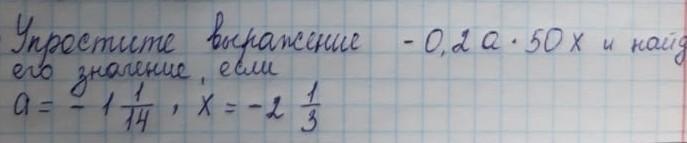 Упростите выражение -0,2a · 50x и найд
его значение, если
a = -1 1/14, x = -2 1/3